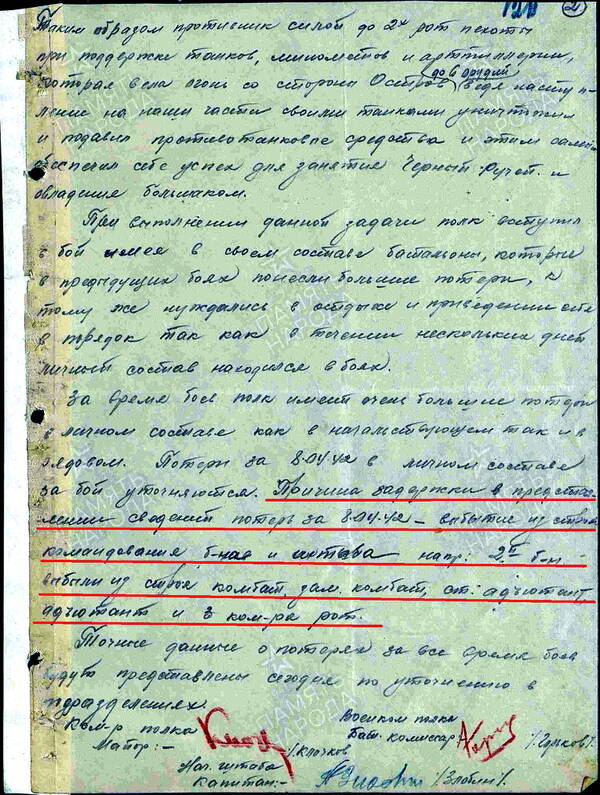 Таким образом противник силой до 2х рот пехоты
при поддержке танков, минометов и арттиллерии,
которая вела огонь со стороны Остров (до 6 орудий) ведя наступ-
ление на наши части своими танками уничтожил
и подавил противотанковые средства и этим самым
обеспечил себе успех для занятие Черный Ручей и
овладение большаком.
При выполнении данной задачи полк вступил
в бой имея в своем составе батальоны, которые
в предыдущих боях понесли большие потери, к
тому же нуждались в отдыхе и приведении себя
в порядок так как в течении нескольких дней
личный состав находился в боях.
За время боев полк имеет очень большие потери
в личном составе как в начальствующем так и в
рядовом. Потери за 8.04.42 в личном составе
за бой уточняются. Причина задержки в представ-
лении сведений потерь за 8.04.42 – выбытие из строя
командования б-нов и штаба напр: 2й б-н –
выбыли из строя комбат, зам. комбат, ст. адъютант,
адъютант и 3 ком-ра рот.
Точные данные о потерях за все время боев
будут представлены сегодня по уточнению в
подразделениях.
Ком-р полка
Майор:-
/Клочков
Военком полка
Бат. комиссар
Нач. штаба
Капитан:-
/Злобин/.
ПАМЯТЬ НАРОДА